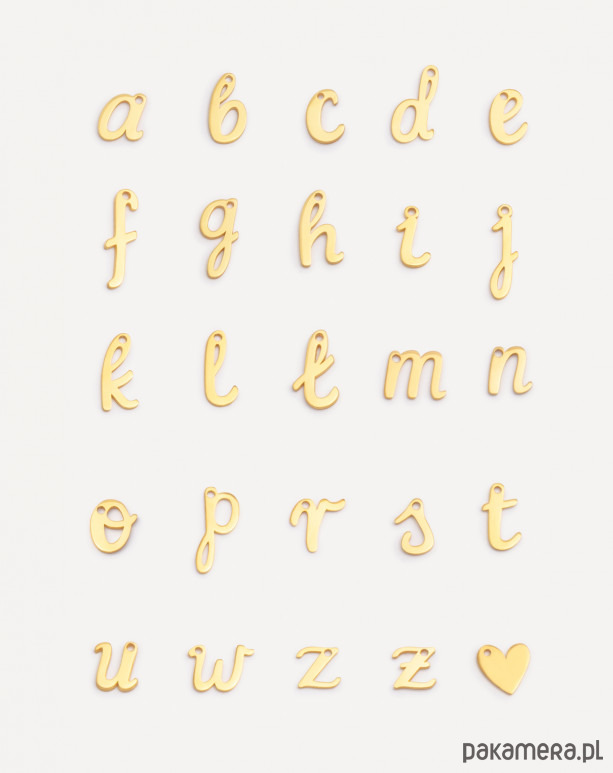 a b c d e
f g h i j
k l ł m n
o p r s t
u w z ƶ
pakamera.pl